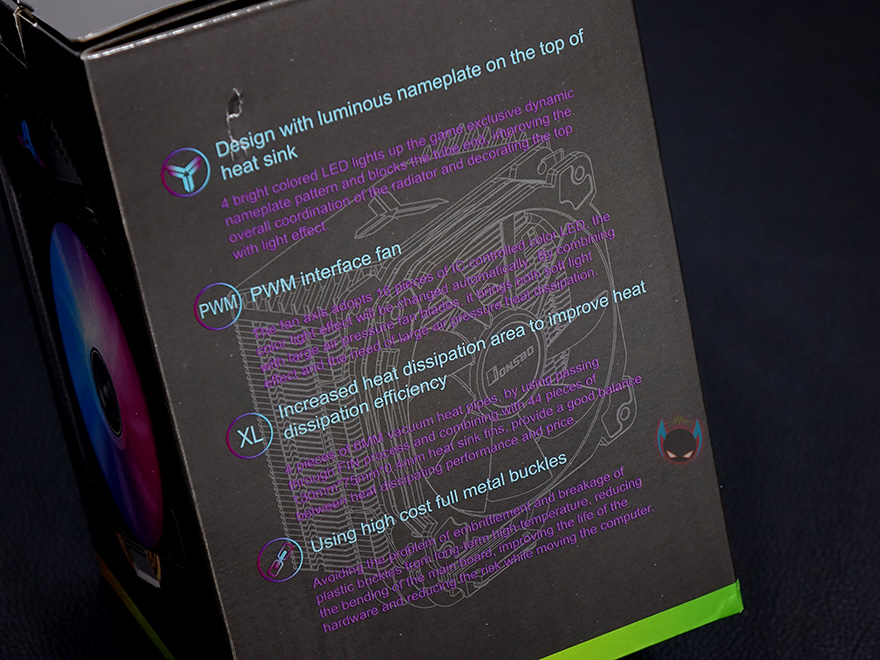 Design with luminous nameplate on the top of
heat sink
4 bright colored LED lights up the game exclusive dynamic
nameplate pattern and blocks the tube end, improving the
overall coordination of the radiator and decorating the top
with light effect
PWM
PWM interface fan
The fan axis adopts pieces of IC controlled color LED, the
color light effect will be changed automatically. By combining
with large air pressure fan blades, it brings both soft light
effect and the need of large air pressure heat dissipation.
JONSBO
XL
Increased heat dissipation area to improve heat
dissipation efficiency
pieces of 6MM vacuum heat pipes, by using passing
through FIN process and combining with 44 pieces of
heat sink fins, provide a good balance
between heat dissipating performance and price
Using high cost full metal buckles
Avoiding the problem of embrittlement and breakage of
plastic buckles from long-term high-temperature, reducing
the bending of the main board, improving the life of the
hardware and reducing the risk while moving the computer.